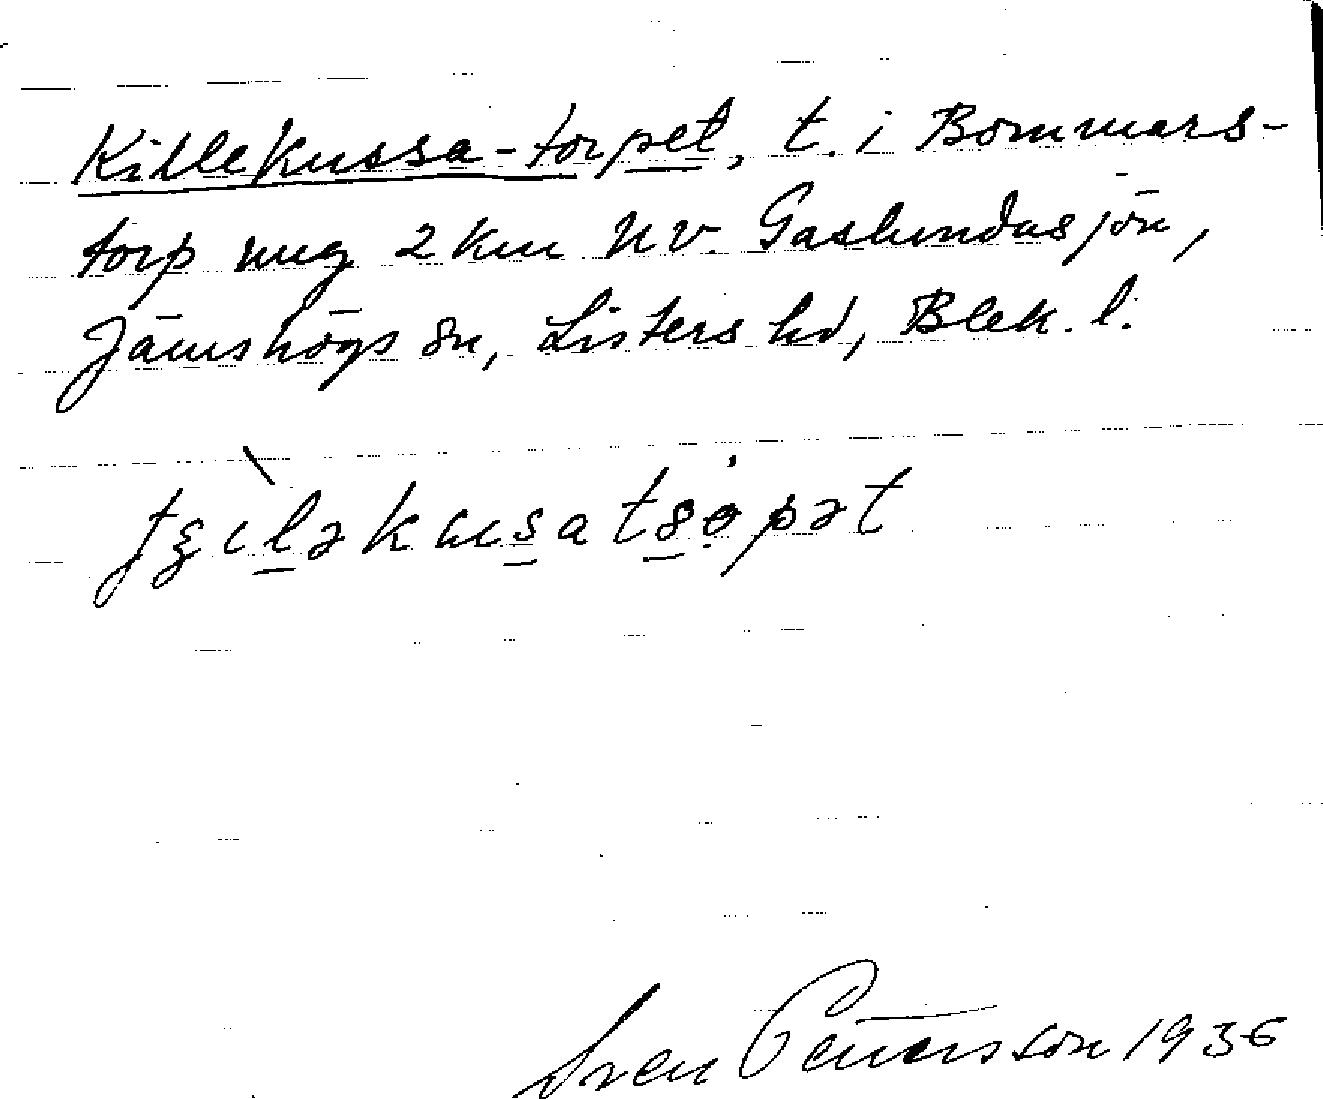 Killekussa-torpet, t. i Bommars-
torp ung 2 km NV. Gaslundasjön,
Jämshögs sn, Listers hd, Blek. l.
Sven Pettersson 1936